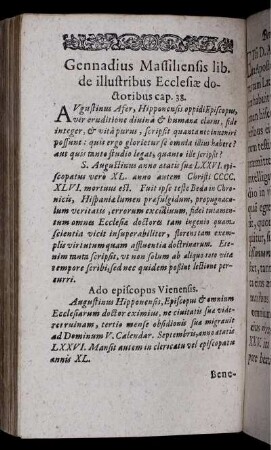 Gennadius Massiliensis lib.
de illustribus Ecclesiæ do-
ctoribus cap. 38.
AVgustinus Afer, Hipponensis oppidi Episcopus,
vir eruditione divina & humana clarus, fide
integer, & vita purus, scripsit quanta nec inveniri
possunt: quis ergo glorietur se omnia illius habere?
aut quis tanto studio legat, quanto ille scripsit?
S. Augustinus anno ætatis suæ LXXVI. epi-
scopatus vero XL. anno autem Christi CCCC.
XLVI. mortuus est. Fuit ipse teste Beda in Chro-
nicis, Hispania lumen præfulgidum, propugnacu-
lum veritatis, errorum excidium, fidei iuvamen-
tum omnes Ecclesiæ doctores tam ingenio quam
scientia vicit insuperabiliter, florentem exem-
plis virtutum quam affluentia doctrinarum. Et e-
nim tanta scripsit, ut non solum ab aliquo toto vitæ
tempore scribi, sed nec quidem possint lectione per-
curri.
Ado episcopus Vienensis.
Augustinus Hipponensis, Episcopus & omnium
Ecclesiarum doctor eximius, ne civitatis suæ vide-
ret ruinam, tertio mense obsidionis suæ migravit
ad Dominum V. Calendar. Septembris, anno ætatis
LXXVI. Mansit autem in clericatu vel episcopatu
annis XL.
Bene-